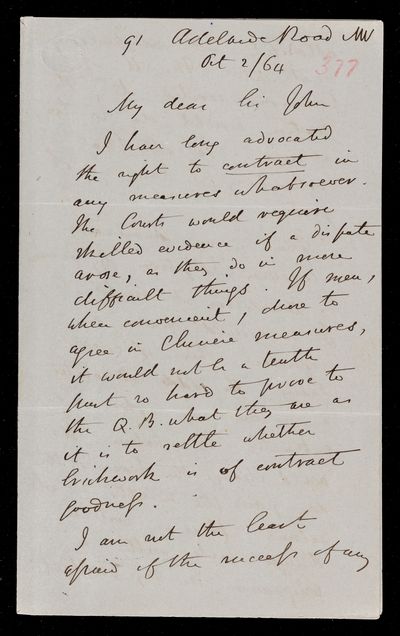 91 Adelaide Road NW
Oct 2/64
377
My dear Sir John
I have long advocated
the right to contract in
any measures whatsoever.
The Courts would require
skilled evidence if a dispute
arose, as they do in more
difficult things. If men,
when convenient, chose to
agree in Chinese measures,
it would not be a tenth
part so hard to prove to
the Q.B. what they are as
it is to settle whether
brickwork is of contract
goodness.
I am not the least
afraid of the success of any